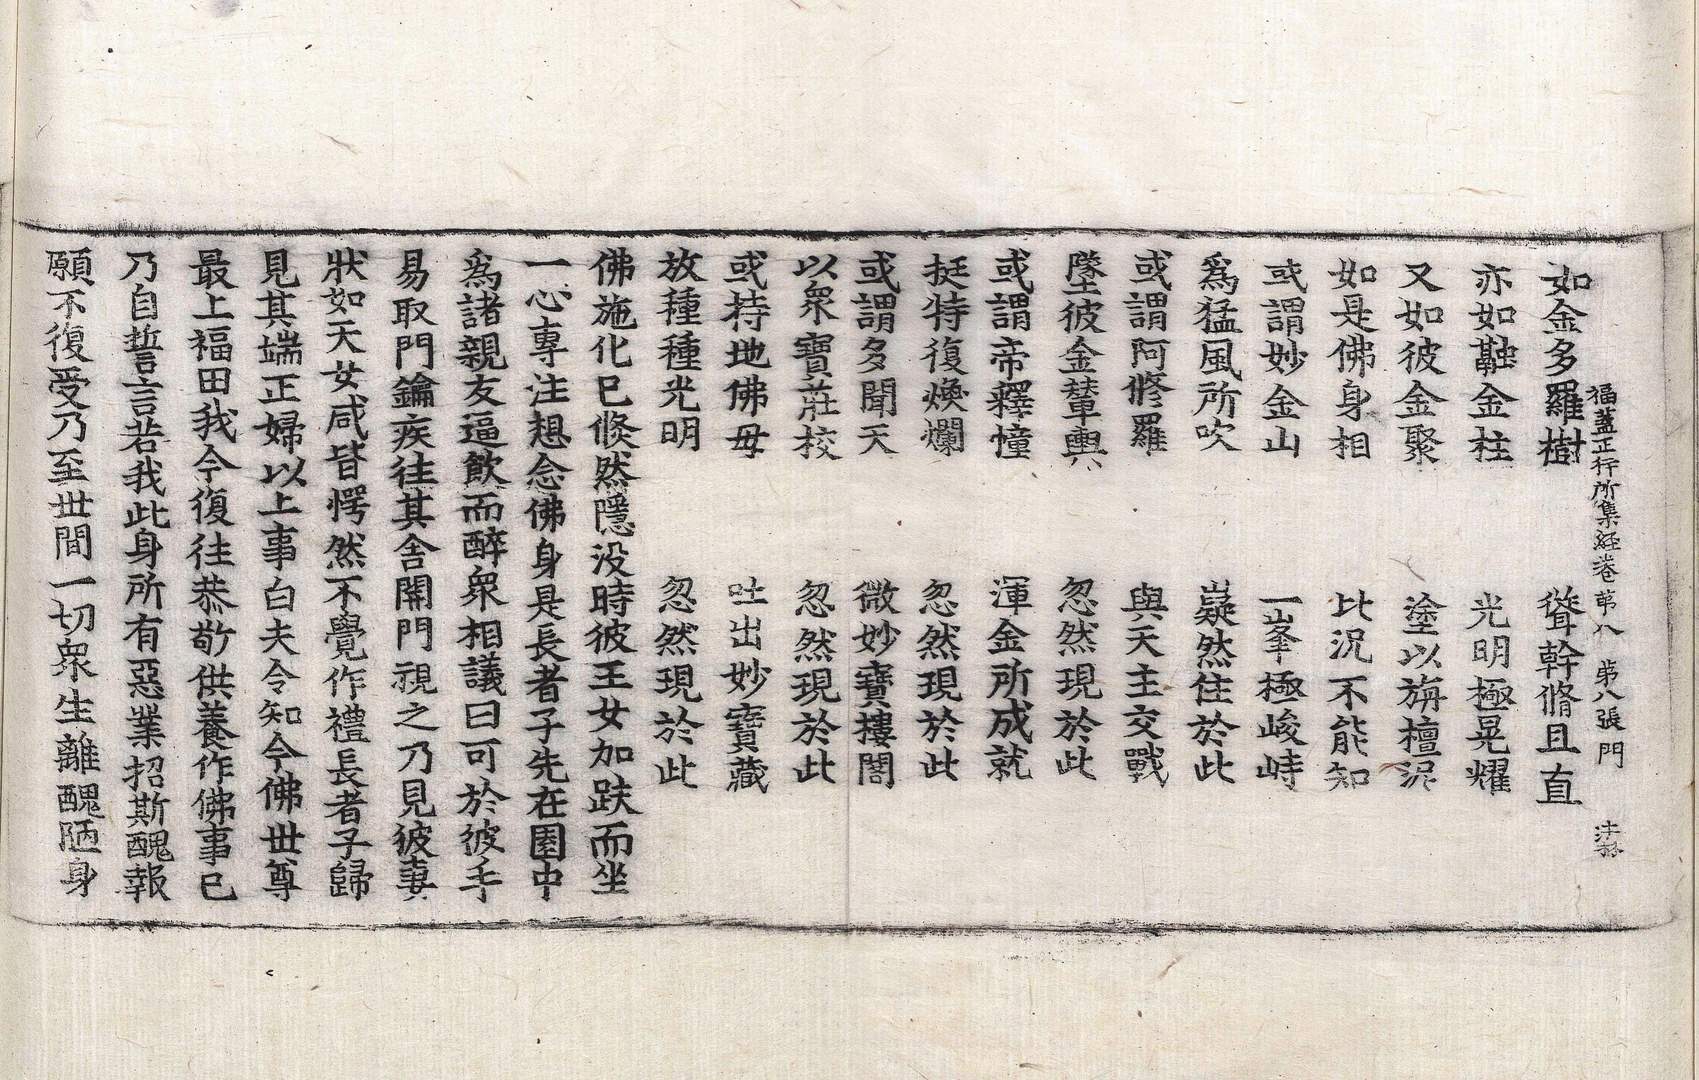 福蓋正行所集經卷第八　第八張　門
如金多羅樹　聳幹脩且直
亦如融金柱　光明極晃耀
又如彼金聚　塗以旃檀泥
如是佛身相　比況不能知
或謂妙金山　一峯極峻峙
爲猛風所吹　嶷然住於此
或謂阿修羅　與天主交戰
墜彼金輦輿　忽然現於此
或謂帝釋幢　渾金所成就
挺特復煥爛　忽然現於此
或謂多聞天　微妙寶樓閣
以衆寶莊校　忽然現於此
或持地佛毋　吐出妙寶藏
放種種光明　忽然現於此
佛施化已倐然隱没時彼王女加趺而坐
一心專注想念佛身是長者子先在園中
爲諸親友逼飲而醉衆相議曰可於彼手
易取門鑰疾往其舍開門視之乃見彼妻
狀如天女咸皆愕然不覺作禮長者子歸
見其端正婦以上事白夫令知今佛世尊
最上福田我今復往恭敬供養作佛事已
乃自誓言若我此身所有惡業招斯醜報
願不復受乃至世間一切衆生離醜陋身